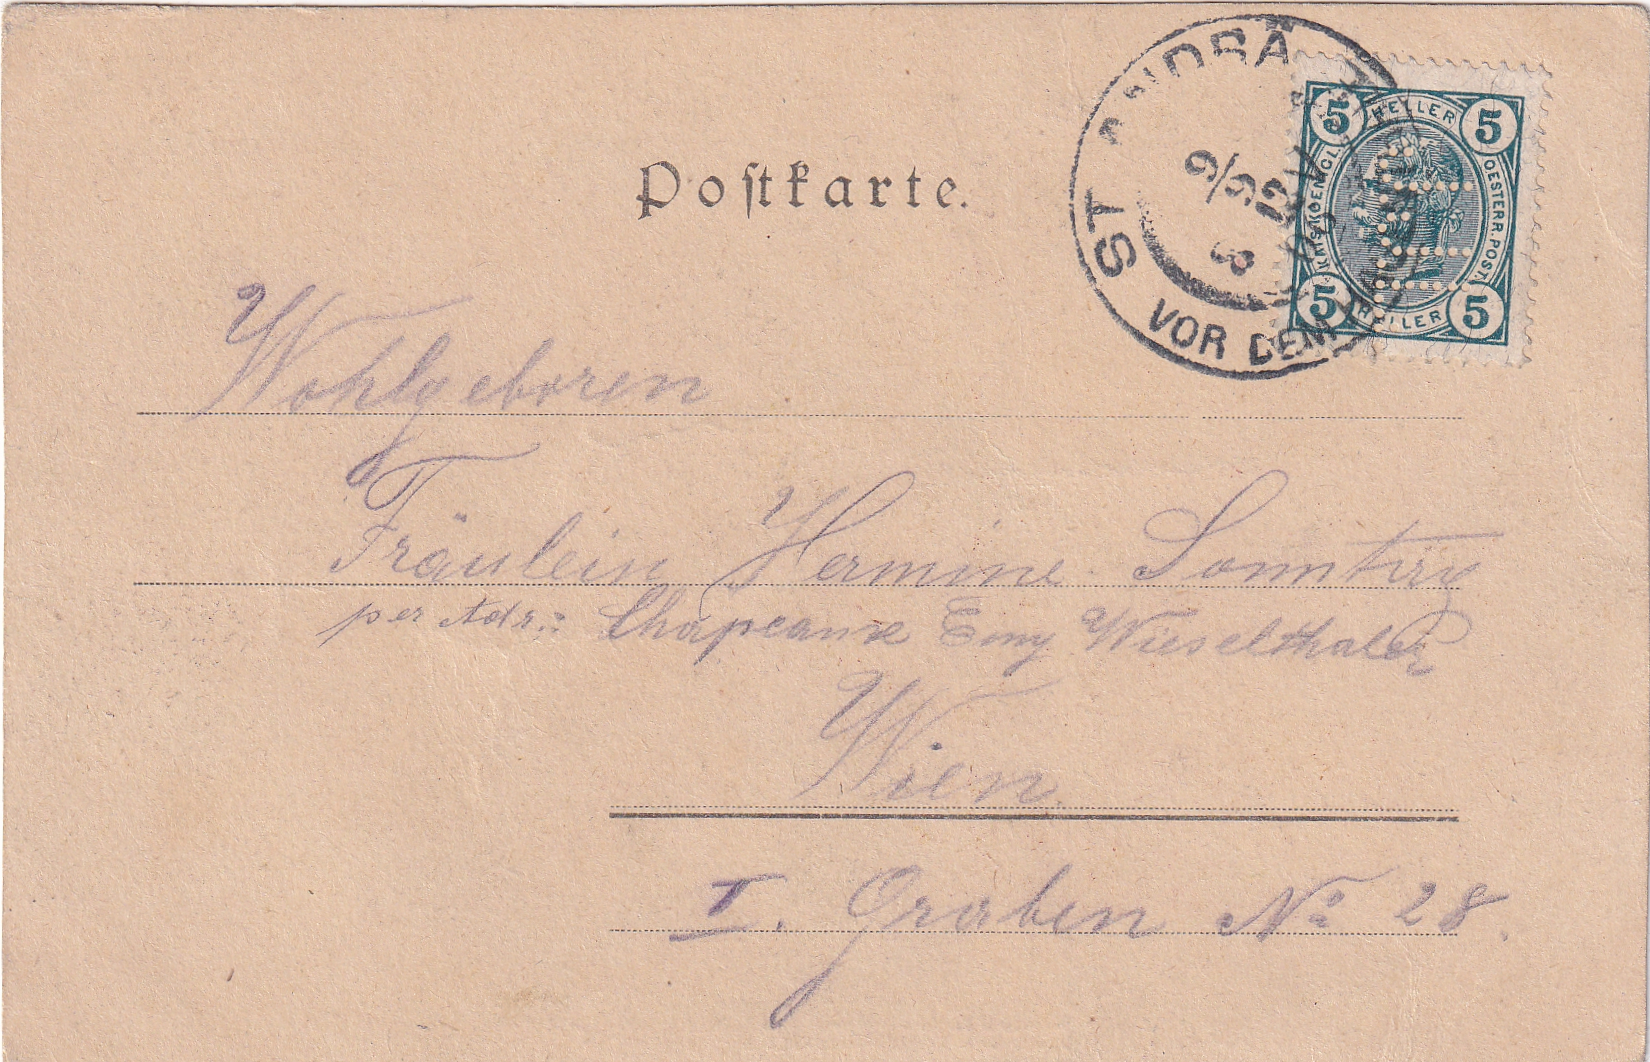 Postkarte.
ST ANDRÄ
VOR DEM
9/9
5 HELLER 5
KAIS.KOENIGL.
OESTERR.POST.
5 HELLER 5
Wohlgeboren
Fräulein Hermine
per Adr.: Chapeaux Emy Wieselthaler
Wien.
I. Graben No 28.